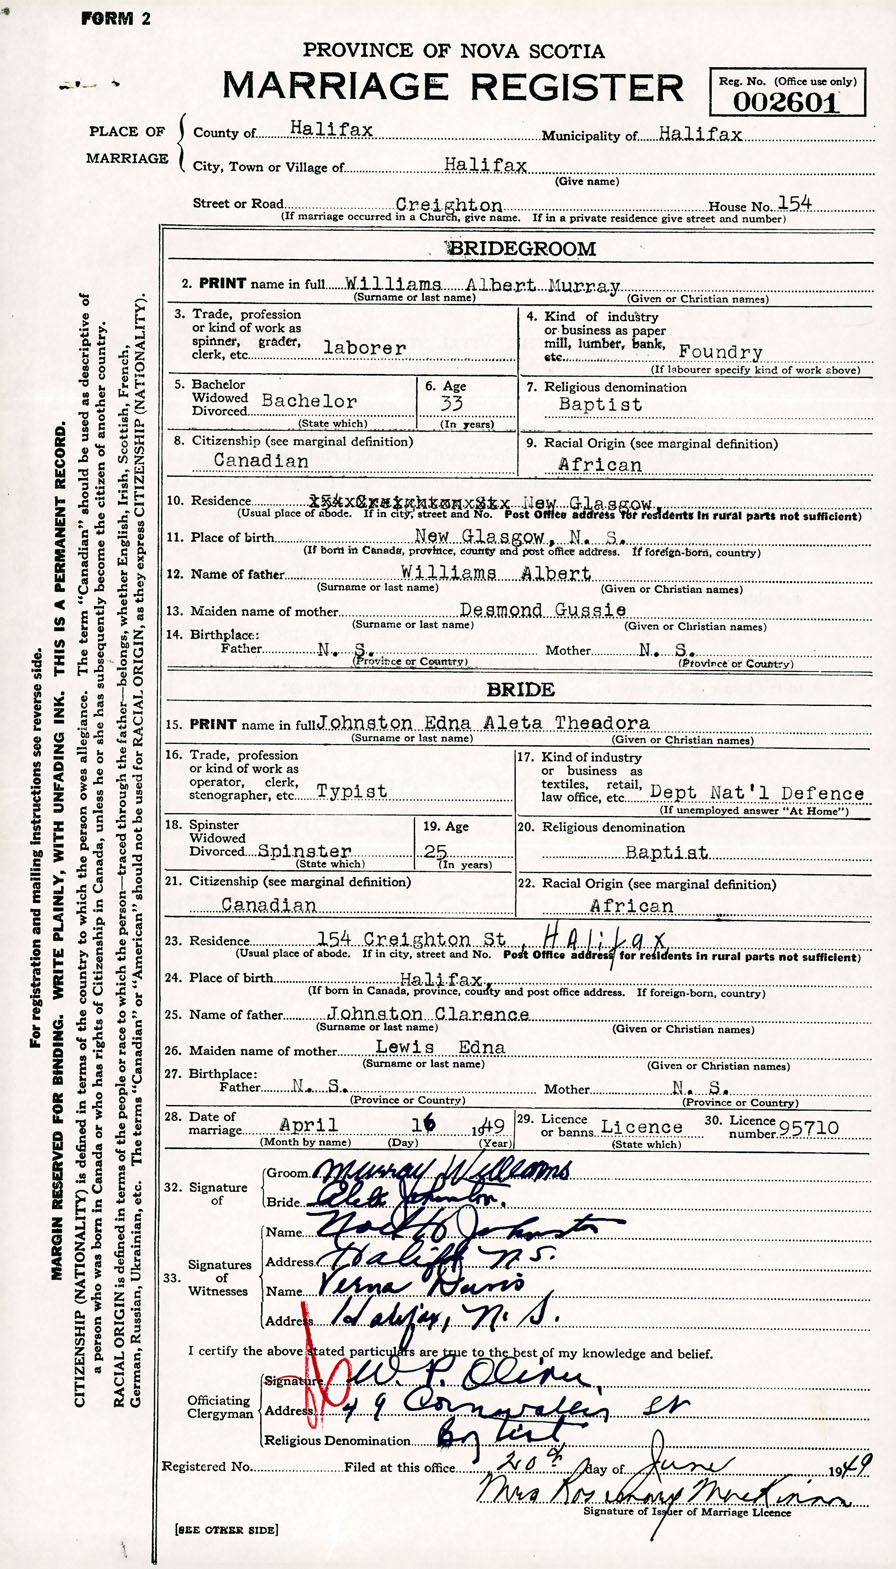 FORM 2
PROVINCE OF NOVA SCOTIA
MARRIAGE REGISTER
Reg. No. (Office use only)
002601
PLACE OF MARRIAGE
County of Halifax Municipality of Halifax
City, Town or Village of Halifax
(Give name)
Street or Road Creighton House No. 154
(If marriage occurred in a Church, give name. If in a private residence give street and number)
BRIDEGROOM
2. PRINT name in full Williams Albert Murray
(Surname or last name) (Given or Christian names)
3. Trade, profession
or kind of work as
spinner, grader,
clerk, etc. laborer
4. Kind of industry
or business as paper
mill, lumber, bank,
etc. Foundry
(If labourer specify kind of work above)
5. Bachelor
Widowed
Divorced Bachelor
(State which)
6. Age
33
(In years)
7. Religious denomination
Baptist
8. Citizenship (see marginal definition)
Canadian
9. Racial Origin (see marginal definition)
African
10. Residence 154 Creighton St New Glasgow,
(Usual place of abode. If in city, street and No. Post Office address for residents in rural parts not sufficient)
11. Place of birth New Glasgow, N. S.
(If born in Canada, province, county and post office address. If foreign-born, country)
12. Name of father Williams Albert
(Surname or last name) (Given or Christian names)
13. Maiden name of mother Desmond Gussie
(Surname or last name) (Given or Christian names)
14. Birthplace:
Father N. S. Mother N. S.
(Province or Country) (Province or Country)
BRIDE
15. PRINT name in full Johnston Edna Aleta Theadora
(Surname or last name) (Given or Christian names)
16. Trade, profession
or kind of work as
operator, clerk,
stenographer, etc Typist
17. Kind of industry
or business as
textiles, retail,
law office, etc. Dept Nat'l Defence
(If unemployed answer "At Home")
18. Spinster
Widowed
Divorced Spinster
(State which)
19. Age
25
(In years)
20. Religious denomination
Baptist
21. Citizenship (see marginal definition)
Canadian
22. Racial Origin (see marginal definition)
African
23. Residence 154 Creighton St, Halifax
(Usual place of abode. If in city, street and No. Post Office address for residents in rural parts not sufficient)
24. Place of birth Halifax,
(If born in Canada, province, county and post office address. If foreign-born, country)
25. Name of father Johnston Clarence
(Surname or last name) (Given or Christian names)
26. Maiden name of mother Lewis Edna
(Surname or last name) (Given or Christian names)
27. Birthplace:
Father N. S. Mother N. S.
(Province or Country) (Province or Country)
28. Date of
marriage April 16 1949
(Month by name) (Day) (Year)
29. Licence
or banns Licence
(State which)
30. Licence
number 95710
32. Signature of
Groom Murray Williams
Bride Johnston
33. Signatures of Witnesses
Name Johnston
Address Halifax N.S.
Name Verna Davis
Address Halifax, N. S.
I certify the above stated particulars are true to the best of my knowledge and belief.
Officiating Clergyman
Signature W. P. Oliver
Address 49 Cornwallis St
Religious Denomination Baptist
Registered No. Filed at this office 20th day of June 1949
Mrs Rosemary MacKinnon
Signature of Issuer of Marriage Licence
[SEE OTHER SIDE]
For registration and mailing instructions see reverse side.
MARGIN RESERVED FOR BINDING. WRITE PLAINLY, WITH UNFADING INK. THIS IS A PERMANENT RECORD.
CITIZENSHIP (NATIONALITY) is defined in terms of the country to which the person owes allegiance. The term "Canadian" should be used as descriptive of
a person who was born in Canada or who has rights of Citizenship in Canada, unless he or she has subsequently become the citizen of another country.
RACIAL ORIGIN is defined in terms of the people or race to which the person—traced through the father—belongs, whether English, Irish, Scottish, French,
German, Russian, Ukrainian, etc. The terms "Canadian" or "American" should not be used for RACIAL ORIGIN, as they express CITIZENSHIP (NATIONALITY).